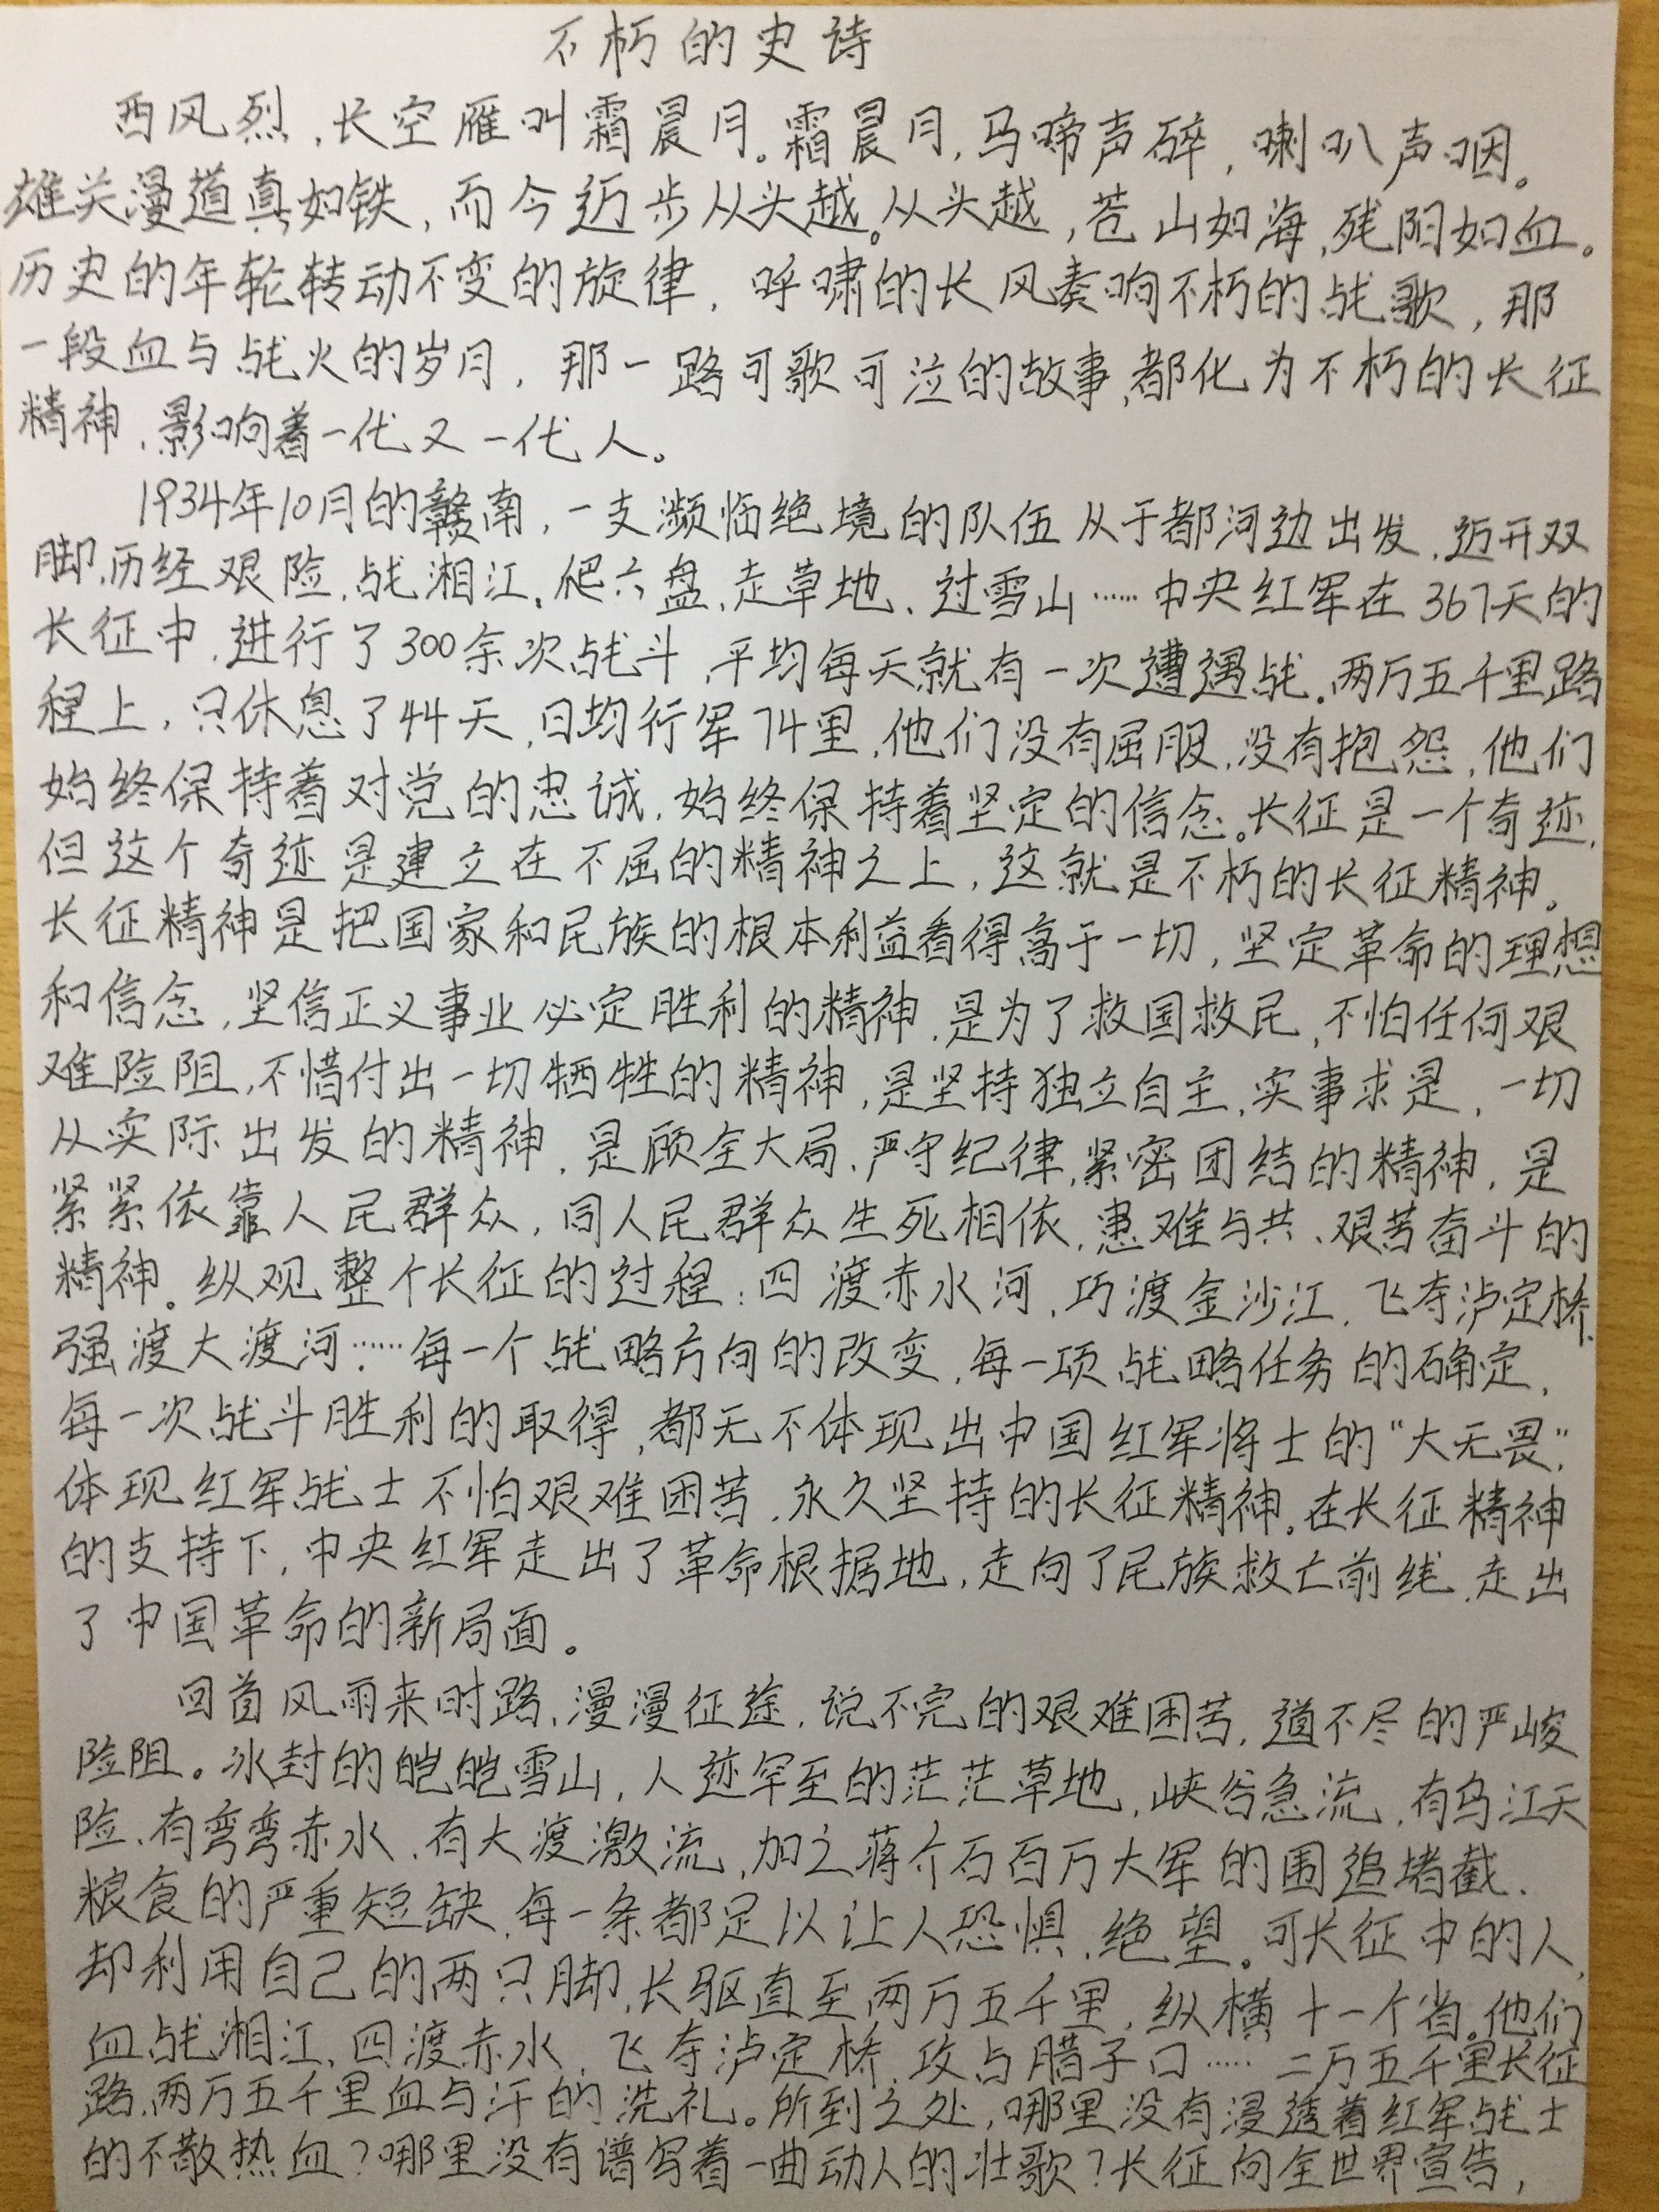 不朽的史诗
西风烈，长空雁叫霜晨月。霜晨月，马啼声碎，喇叭声咽。
雄关漫道真如铁，而今迈步从头越。从头越，苍山如海，残阳如血。
历史的年轮转动不变的旋律，呼啸的长风奏响不朽的战歌，那
一段血与战火的岁月，那一路可歌可泣的故事，都化为不朽的长征
精神，影响着一代又一代人。
1934年10月的赣南，一支濒临绝境的队伍从于都河边出发，迈开双
脚，历经艰险，战湘江、爬六盘、走草地、过雪山……中央红军在367天的
长征中，进行了300余次战斗，平均每天就有一次遭遇战。两万五千里路
程上，只休息了44天，日均行军74里，他们没有屈服，没有抱怨，他们
始终保持着对党的忠诚，始终保持着坚定的信念。长征是一个奇迹，
但这个奇迹是建立在不屈的精神之上，这就是不朽的长征精神。
长征精神是把国家和民族的根本利益看得高于一切，坚定革命的理想
和信念，坚信正义事业必定胜利的精神，是为了救国救民，不怕任何艰
难险阻，不惜付出一切牺牲的精神，是坚持独立自主，实事求是，一切
从实际出发的精神，是顾全大局、严守纪律、紧密团结的精神，是
紧紧依靠人民群众，同人民群众生死相依，患难与共、艰苦奋斗的
精神。纵观整个长征的过程：四渡赤水河，巧渡金沙江，飞夺泸定桥，
强渡大渡河……每一个战略方向的改变，每一项战略任务的确定，
每一次战斗胜利的取得，都无不体现出中国红军将士的“大无畏”，
体现红军战士不怕艰难困苦，永久坚持的长征精神。在长征精神
的支持下，中央红军走出了革命根据地，走向了民族救亡前线，走出
了中国革命的新局面。
回首风雨来时路，漫漫征途，说不完的艰难困苦，道不尽的严峻
险阻。冰封的皑皑雪山，人迹罕至的茫茫草地，峡谷急流，有乌江天
险、有弯弯赤水，有大渡激流，加之蒋介石百万大军的围追堵截、
粮食的严重短缺，每一条都足以让人恐惧、绝望。可长征中的人，
却利用自己的两只脚，长驱直至两万五千里，纵横十一个省。他们
血战湘江、四渡赤水、飞夺泸定桥、攻占腊子口……二万五千里长征
路，两万五千里血与汗的洗礼。所到之处，哪里没有浸透着红军战士
的不散热血？哪里没有谱写着一曲动人的壮歌？长征向全世界宣告，